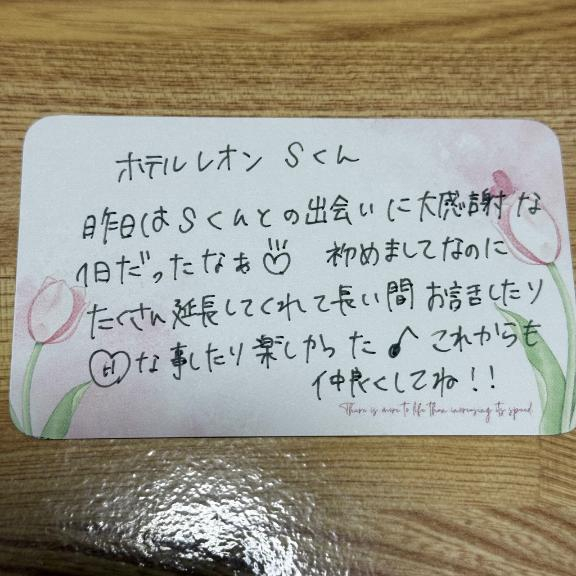 ホテルレオン Sくん
昨日はSくんとの出会いに大感謝な
1日だったなぁ♡ 初めましてなのに
たくさん延長してくれて長い間お話したり
Hな事したり楽しかった♪ これからも
仲良くしてね!!
There is more to life than increasing its speed